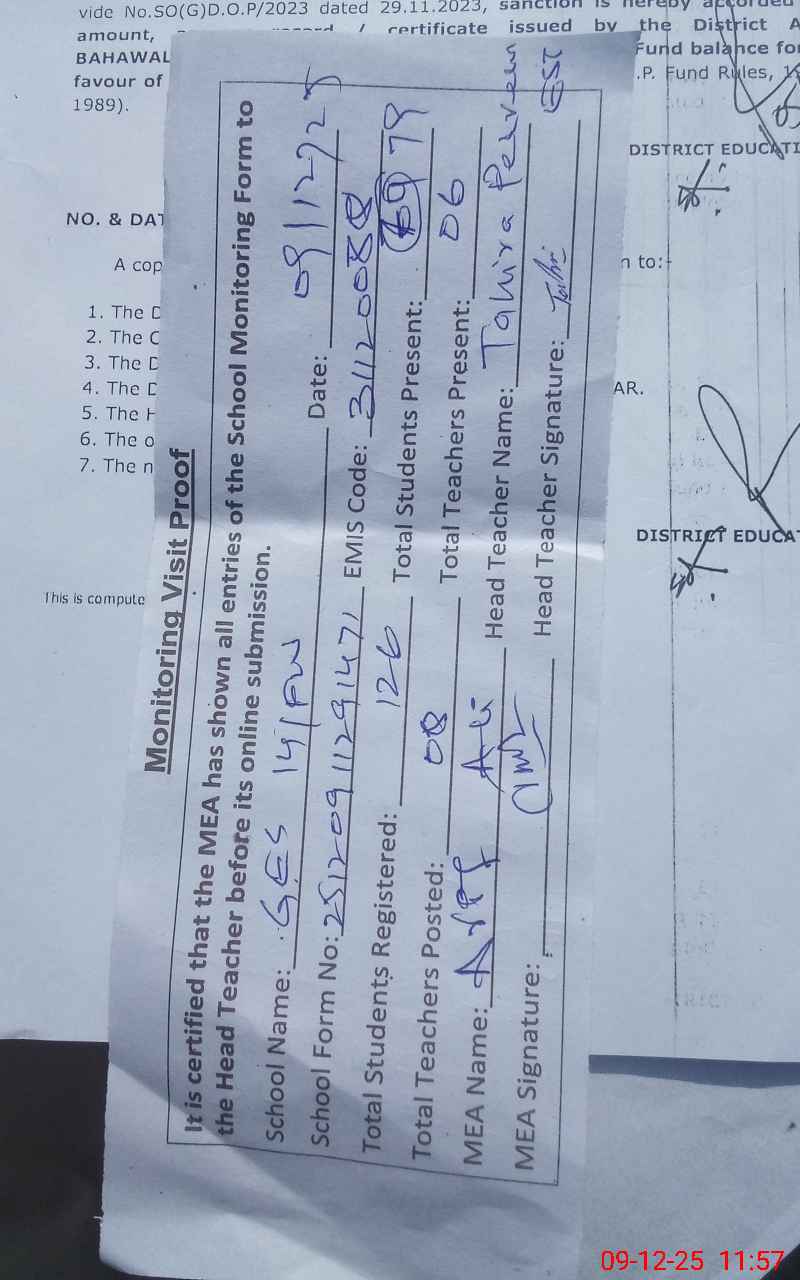 vide No.SO(G)D.O.P/2023 dated 29.11.2023, sanction is hereby accorded
amount, / certificate issued by the District A
BAHAWAL Fund balance for
favour of .P. Fund Rules,
1989).
DISTRICT EDUCATI
NO. & DAT
A cop n to:-
1. The D
2. The C
3. The D
4. The D AR.
5. The H
6. The o
7. The n
DISTRICT EDUCA
This is compute
Monitoring Visit Proof
It is certified that the MEA has shown all entries of the School Monitoring Form to
the Head Teacher before its online submission.
School Name: GES 141/FW Date: 09/12/25
School Form No: 251209112911471 EMIS Code: 31120088
Total Students Registered: 126 Total Students Present: 79
Total Teachers Posted: 08 Total Teachers Present: 06
MEA Name: Ali Head Teacher Name: Tahira Perveen
MEA Signature: Head Teacher Signature: EST
09-12-25 11:57